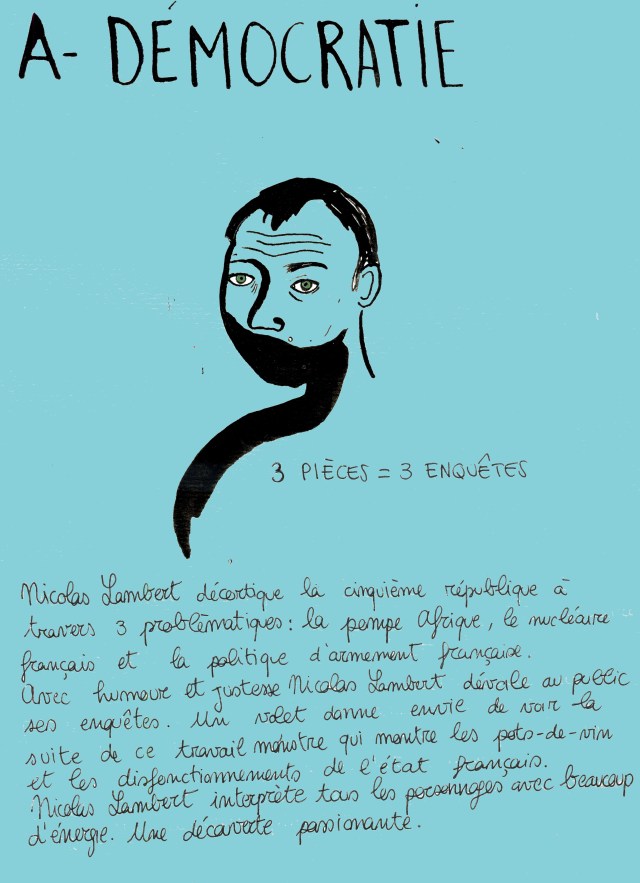 A- DÉMOCRATIE
3 PIÈCES = 3 ENQUÊTES
Nicolas Lambert décortique la cinquième république à
travers 3 problèmatiques : la pompe Afrique, le nucléaire
français et la politique d'armement française.
Avec humour et justesse Nicolas Lambert dévoile au public
ses enquêtes. Un volet donne envie de voir la
suite de ce travail monstre qui montre les pots-de-vin
et les disfonctionnements de l'état français.
Nicolas Lambert interprète tous les personnages avec beaucoup
d'énergie. Une découverte passionante.